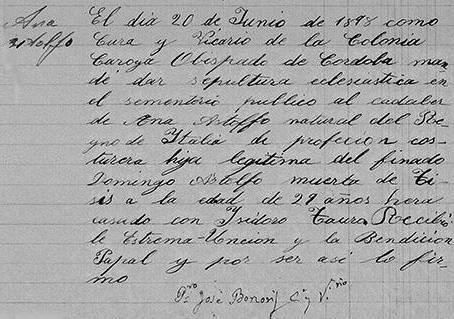 Ana
Astoffo
El dia 20 de Junio de 1898 como
Cura y Vicario de la Colonia
Caroya Obispado de Cordoba man
dé dar sepultura eclesiastica en
el sementerio publico al cadaber
de Ana Astoffo natural del Re
yno de Italia de profecion cos
turera hija legitima del finado
Domingo Astolfo muerta de Ti
sis a la edad de 29 años hera
casada con Isidoro Tauro Recibio
le Estrema-Uncion y la Bendicion
Papal y por ser asi lo fir
mo
Pro José C. y V.rio